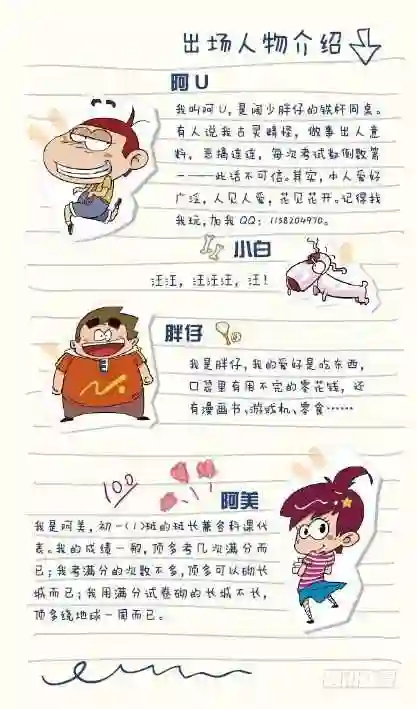 出场人物介绍
阿U
我叫阿U，是阔少胖仔的铁杆同桌。
有人说我古灵精怪，做事出人意
料，恶搞连连，每次考试都倒数第
一——此话不可信。其实，本人爱好
广泛，人见人爱，花见花开。记得找
我玩，加我QQ：1138204970。
小白
汪汪，汪汪汪，汪！
胖仔
我是胖仔，我的爱好是吃东西，
口袋里有用不完的零花钱，还
有漫画书、游戏机、零食……
100
阿美
我是阿美，初一（1）班的班长兼各科课代
表。我的成绩一般，顶多考几次满分而
已；我考满分的次数不多，顶多可以砌长
城而已；我用满分试卷砌的长城不长，
顶多绕地球一周而已。